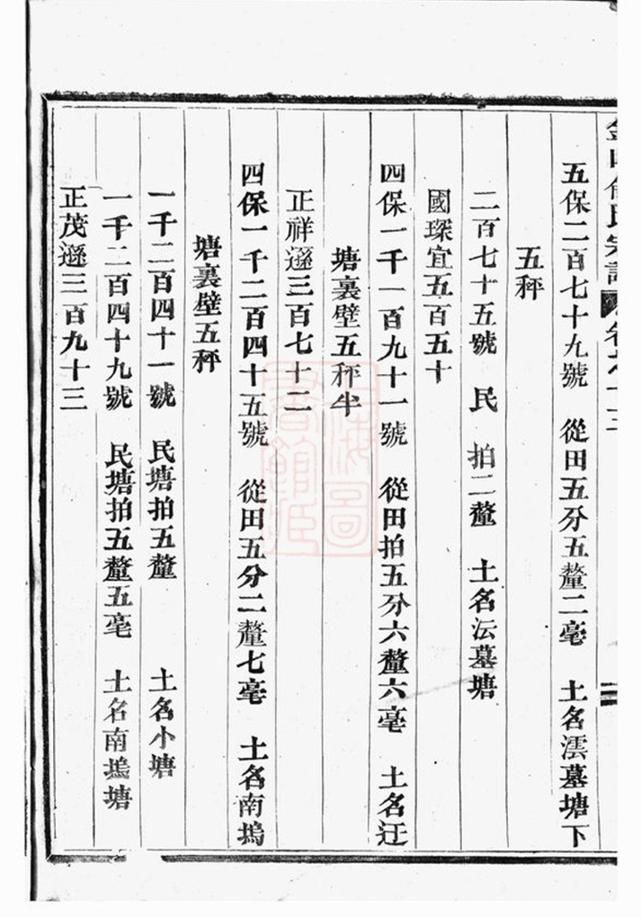 五保二百七十九號　從田五分五釐二毫　土名澐墓塘下
五秤
二百七十五號　民　拍二釐　土名沄墓塘
國琛宜五百五十
四保一千一百九十一號　從田拍五分六釐六毫　土名迋
塘裏壁五秤半
正祥遜三百七十二
四保一千二百四十五號　從田五分二釐七毫　土名南塢
塘裏壁五秤
一千二百四十一號　民塘拍五釐　土名小塘
一千二百四十九號　民塘拍五釐五毫　土名南塢塘
正茂遜三百九十三